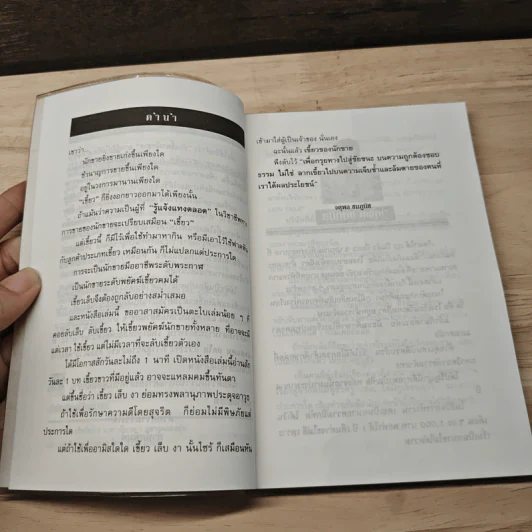 คำนำ
เขาว่า
นักขายยิ่งขายเก่งขึ้นเพียงใด
ชำนาญการขายขึ้นเพียงใด
อยู่ในวงการมานานเพียงใด
"เขี้ยว" ก็ยิ่งงอกยาวออกมาได้เพียงนั้น
ถ้าแม้นว่าความเป็นผู้ที่ "รู้แจ้งแทงตลอด" ในวิชาชีพ
การขายของนักขายจะเปรียบเสมือน "เขี้ยว"
แต่เขี้ยวนี้ ก็มีไว้เพื่อใช้ทำมาหากิน หรือมีเอาไว้ใช้
กับลูกค้าประเภทเขี้ยว เหมือนกัน ก็ไม่แปลกแต่ประการใด
การจะเป็นนักขายมืออาชีพระดับพระกาฬ
เป็นนักขายระดับพยัคฆ์เขี้ยวคมได้
เขี้ยวเล็บจึงต้องถูกลับอย่างสม่ำเสมอ
และหนังสือเล่มนี้ ขออาสาสมัครเป็นตะไบเล่มน้อย ๆ ที่
คอยลับเล็บ ลับเขี้ยว ให้เขี้ยวพยัคฆ์นักขายทั้งหลาย ที่อาจจะมี
แต่เวลา ใช้เขี้ยว แต่ไม่มีเวลาที่จะลับเขี้ยวตัวเอง
ได้มีโอกาสสักวันละไม่ถึง 1 นาที เปิดหนังสือเล่มนี้อ่าน
วันละ 1 บท เขี้ยวยาวที่มีอยู่แล้ว อาจจะแหลมคมขึ้นทันตา
แต่ขึ้นชื่อว่า เขี้ยว เล็บ งา ย่อมทรงพลานุภาพประดุจอาวุธ
ถ้าใช้เพื่อรักษาความดีโดยสุจริต ก็ย่อมไม่มีพิษภัยแต่
ประการใด
แต่ถ้าใช้เพื่ออามิสใดใด เขี้ยว เล็บ งา นั้นไซร้ ก็เสมือนหัน
เข้ามาใส่ผู้เป็นเจ้าของ นั่นเอง
ฉะนั้นแล้ว เขี้ยวของนักขาย
พึงลับไว้ "เพื่อกรุยทางไปสู่ชัยชนะ บนความถูกต้องชอบ
ธรรม ไม่ใช่ ลากเขี้ยวไปบนความเจ็บช้ำและล้มตายของคนที่
เราได้ผลประโยชน์"
จตุพล ชมภูนิช